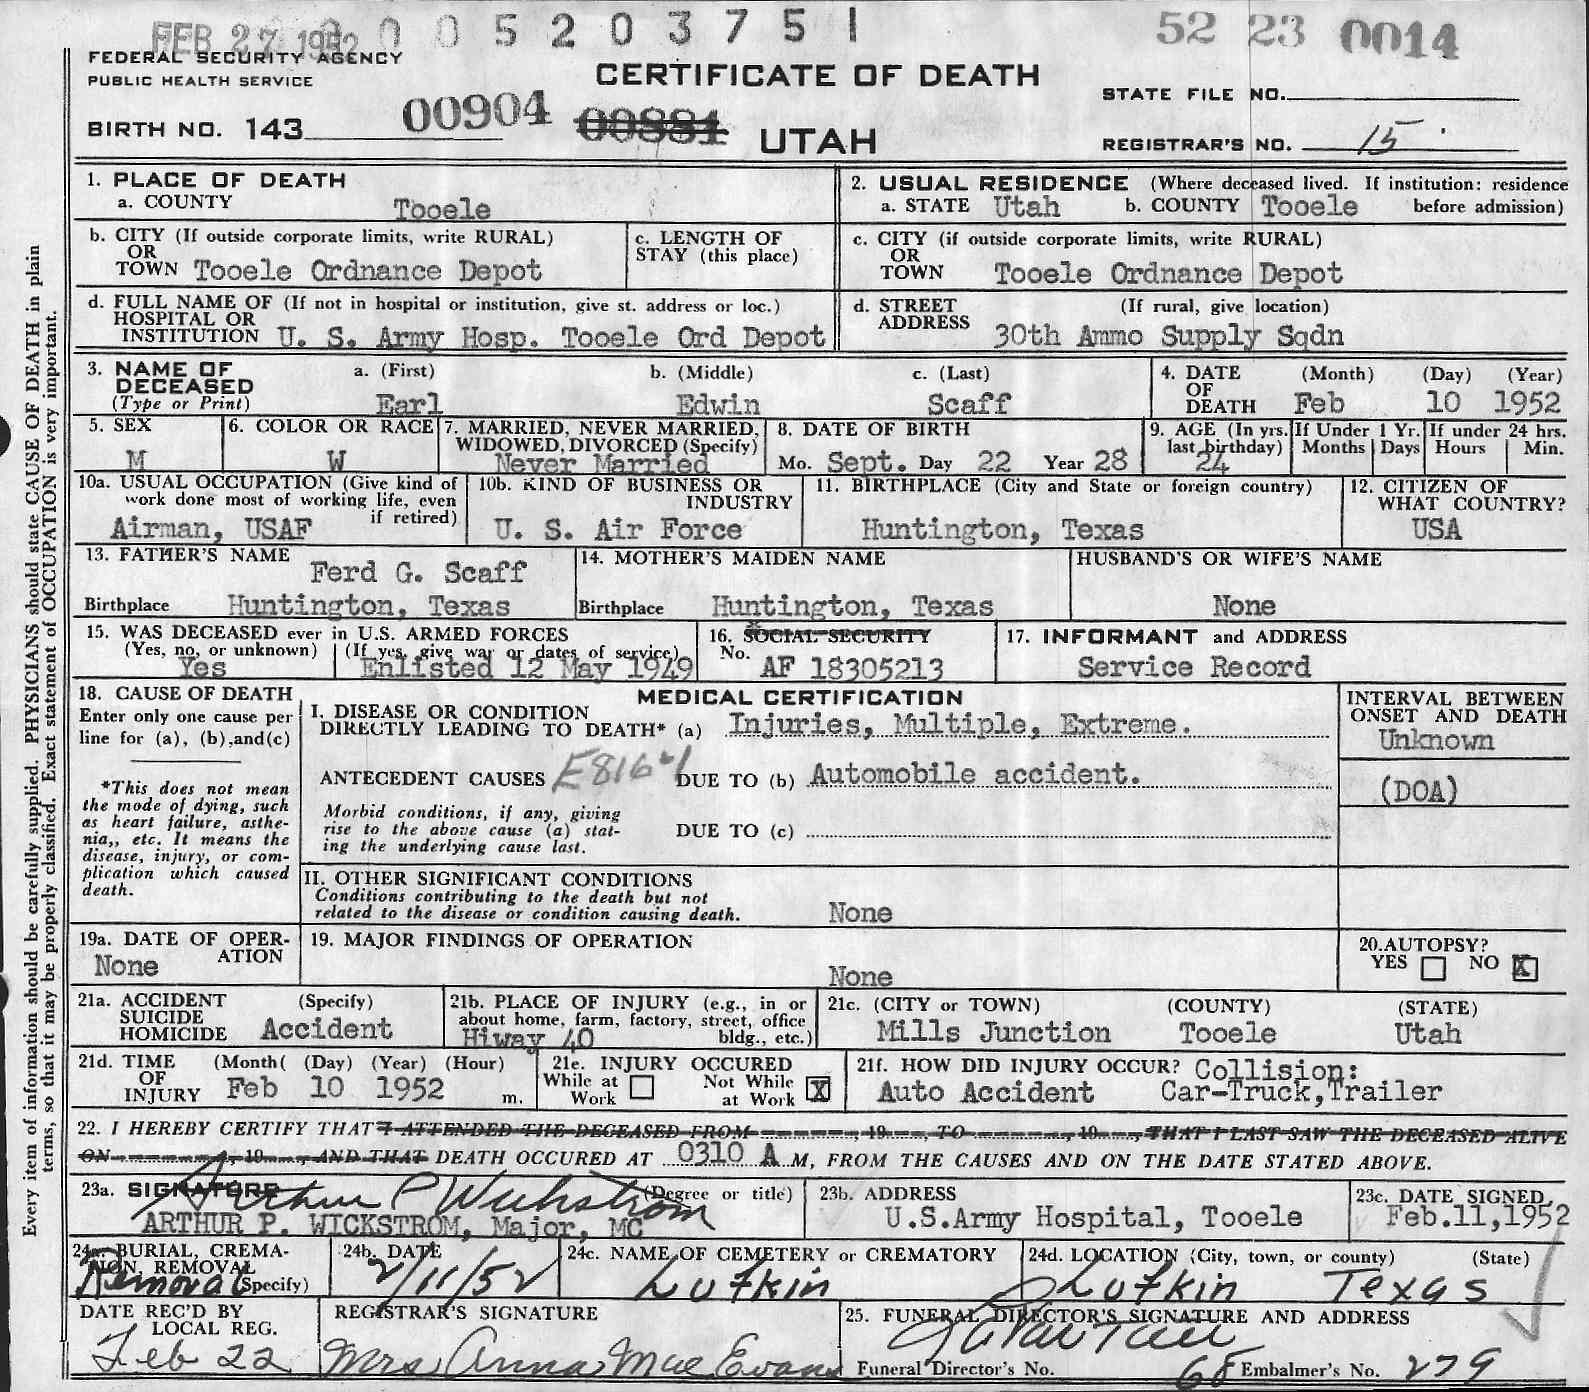 FEB 27 1952 0 0 5 2 0 3 7 5 1 52 23 0014
FEDERAL SECURITY AGENCY
PUBLIC HEALTH SERVICE
CERTIFICATE OF DEATH
STATE FILE NO.
BIRTH NO. 143 00904 00881 UTAH
REGISTRAR'S NO. 15
Every item of information should be carefully supplied. PHYSICIANS should state CAUSE OF DEATH in plain
terms, so that it may be properly classified. Exact statement of OCCUPATION is very important.
1. PLACE OF DEATH
a. COUNTY Tooele
2. USUAL RESIDENCE (Where deceased lived. If institution: residence
a. STATE Utah b. COUNTY Tooele before admission)
b. CITY (If outside corporate limits, write RURAL)
OR
TOWN Tooele Ordnance Depot
c. LENGTH OF
STAY (this place)
c. CITY (if outside corporate limits, write RURAL)
OR
TOWN Tooele Ordnance Depot
d. FULL NAME OF (If not in hospital or institution, give st. address or loc.)
HOSPITAL OR
INSTITUTION U. S. Army Hosp. Tooele Ord Depot
d. STREET (If rural, give location)
ADDRESS 30th Ammo Supply Sqdn
3. NAME OF
DECEASED
(Type or Print)
a. (First) b. (Middle) c. (Last)
Earl Edwin Scaff
4. DATE (Month) (Day) (Year)
OF
DEATH Feb 10 1952
5. SEX
M
6. COLOR OR RACE
W
7. MARRIED, NEVER MARRIED,
WIDOWED, DIVORCED (Specify)
Never Married
8. DATE OF BIRTH
Mo. Sept. Day 22 Year 28
9. AGE (In yrs.
last birthday)
24
If Under 1 Yr.
Months Days
If under 24 hrs.
Hours Min.
10a. USUAL OCCUPATION (Give kind of
work done most of working life, even
if retired)
Airman, USAF
10b. KIND OF BUSINESS OR
INDUSTRY
U. S. Air Force
11. BIRTHPLACE (City and State or foreign country)
Huntington, Texas
12. CITIZEN OF
WHAT COUNTRY?
USA
13. FATHER'S NAME
Ferd G. Scaff
Birthplace Huntington, Texas
14. MOTHER'S MAIDEN NAME
Birthplace Huntington, Texas
HUSBAND'S OR WIFE'S NAME
None
15. WAS DECEASED ever in U.S. ARMED FORCES
(Yes, no, or unknown) (If yes, give war or dates of service)
Yes Enlisted 12 May 1949
16. SOCIAL SECURITY
No. AF 18305213
17. INFORMANT and ADDRESS
Service Record
18. CAUSE OF DEATH
Enter only one cause per
line for (a), (b), and (c)
*This does not mean
the mode of dying, such
as heart failure, asthe-
nia,, etc. It means the
disease, injury, or com-
plication which caused
death.
MEDICAL CERTIFICATION
I. DISEASE OR CONDITION
DIRECTLY LEADING TO DEATH* (a) Injuries, Multiple, Extreme.
ANTECEDENT CAUSES E816-1 DUE TO (b) Automobile accident.
Morbid conditions, if any, giving
rise to the above cause (a) stat-
ing the underlying cause last.
DUE TO (c)
INTERVAL BETWEEN
ONSET AND DEATH
Unknown
(DOA)
II. OTHER SIGNIFICANT CONDITIONS
Conditions contributing to the death but not
related to the disease or condition causing death. None
19a. DATE OF OPER-
ATION
None
19. MAJOR FINDINGS OF OPERATION
None
20. AUTOPSY?
YES NO X
21a. ACCIDENT (Specify)
SUICIDE
HOMICIDE Accident
21b. PLACE OF INJURY (e.g., in or
about home, farm, factory, street, office
bldg., etc.)
Hiway 40
21c. (CITY or TOWN) (COUNTY) (STATE)
Mills Junction Tooele Utah
21d. TIME (Month( (Day) (Year) (Hour)
OF
INJURY Feb 10 1952 m.
21e. INJURY OCCURED
While at Work Not While at Work X
21f. HOW DID INJURY OCCUR? Collision:
Auto Accident Car-Truck,Trailer
22. I HEREBY CERTIFY THAT I ATTENDED THE DECEASED FROM , 19 , TO , 19 , THAT I LAST SAW THE DECEASED ALIVE
ON , 19 , AND THAT DEATH OCCURED AT 0310 A M, FROM THE CAUSES AND ON THE DATE STATED ABOVE.
23a. SIGNATURE Arthur P Wickstrom (Degree or title)
ARTHUR P. WICKSTROM, Major, MC
23b. ADDRESS
U.S.Army Hospital, Tooele
23c. DATE SIGNED
Feb.11,1952
24a. BURIAL, CREMA-
TION, REMOVAL
(Specify)
Removal
24b. DATE
2/11/52
24c. NAME OF CEMETERY or CREMATORY
Lufkin
24d. LOCATION (City, town, or county) (State)
Lufkin Texas
DATE REC'D BY
LOCAL REG.
Feb 22
REGISTRAR'S SIGNATURE
Mrs Anna Mae Evans
25. FUNERAL DIRECTOR'S SIGNATURE AND ADDRESS
Funeral Director's No. 68 Embalmer's No. 279